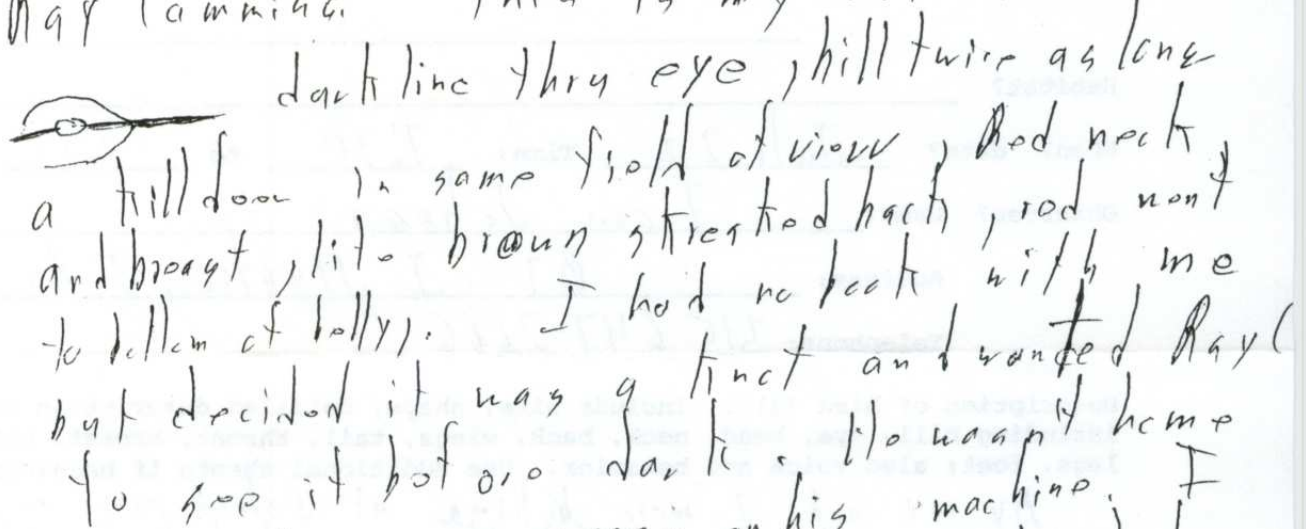 dark line thru eye, bill twice as long
a killdeer in same field of view, Red neck
and breast, lite brown streaked back, red went
to bottom of belly. I had no book with me
but decided it was a knot and wanted Ray
to see it before dark. He wasn't home
on his machine. I